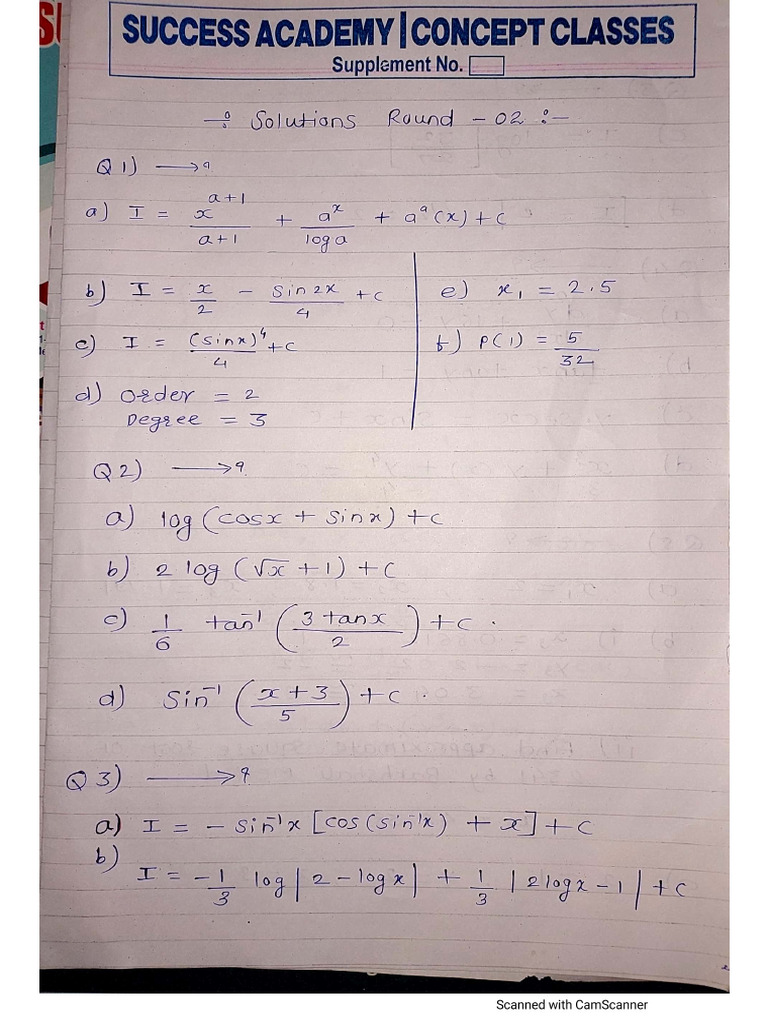 SUCCESS ACADEMY | CONCEPT CLASSES
Supplement No.
÷ Solutions Round - 02 :-
Q 1) ⟶
a) I = x^(a+1)/(a+1) + a^x/log a + a^a (x) + c
b) I = x/2 - sin 2x/4 + c
c) I = (sinx)^4/4 + c
d) Order = 2
Degree = 3
e) x₁ = 2.5
f) P(1) = 5/32
Q 2) ⟶
a) log (cosx + sinx) + c
b) 2 log (√x + 1) + c
c) 1/6 tan⁻¹ (3 tanx/2) + c .
d) Sin⁻¹ (x + 3/5) + c .
Q 3) ⟶
a) I = - sin⁻¹x [cos (sin⁻¹x) + x] + c
b)
I = -1/3 log | 2 - logx | + 1/3 | 2logx - 1 | + c
Scanned with CamScanner